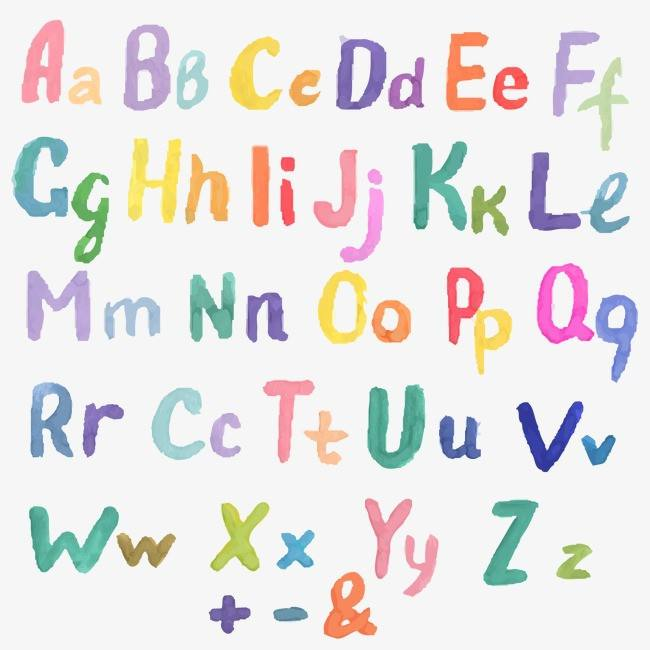 Aa Bb Cc Dd Ee Ff
Gg Hh Ii Jj Kk Ll
Mm Nn Oo Pp Qq
Rr Cc Tt Uu Vv
Ww Xx Yy Zz
+ - &